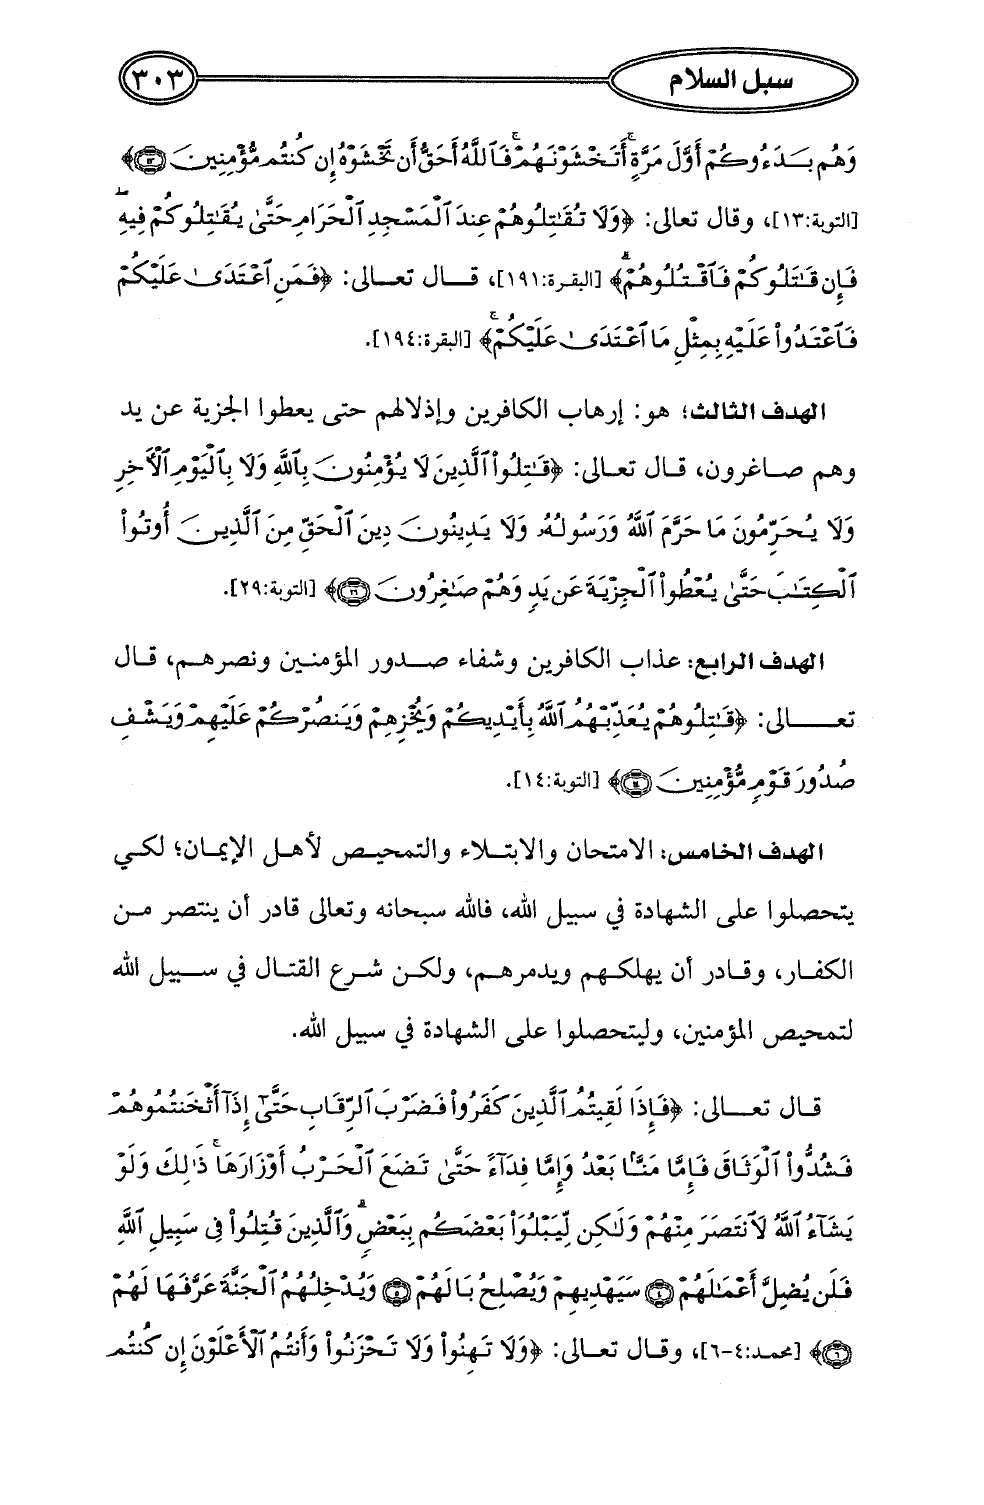 سبل السلام ٣٠٣
وَهُم بَدَءُوكُمْ أَوَّلَ مَرَّةٍ ۚ أَتَخْشَوْنَهُمْ ۚ فَٱللَّهُ أَحَقُّ أَن تَخْشَوْهُ إِن كُنتُم مُّؤْمِنِينَ ١٣﴾
[التوبة:١٣]، وقال تعالى: ﴿وَلَا تُقَٰتِلُوهُمْ عِندَ ٱلْمَسْجِدِ ٱلْحَرَامِ حَتَّىٰ يُقَٰتِلُوكُمْ فِيهِ ۖ
فَإِن قَٰتَلُوكُمْ فَٱقْتُلُوهُمْ ۗ﴾ [البقرة:١٩١]، قال تعالى: ﴿فَمَنِ ٱعْتَدَىٰ عَلَيْكُمْ
فَٱعْتَدُوا۟ عَلَيْهِ بِمِثْلِ مَا ٱعْتَدَىٰ عَلَيْكُمْ ۚ﴾ [البقرة:١٩٤].
الهدف الثالث؛ هو: إرهاب الكافرين وإذلالهم حتى يعطوا الجزية عن يد
وهم صاغرون، قال تعالى: ﴿قَٰتِلُوا۟ ٱلَّذِينَ لَا يُؤْمِنُونَ بِٱللَّهِ وَلَا بِٱلْيَوْمِ ٱلْءَاخِرِ
وَلَا يُحَرِّمُونَ مَا حَرَّمَ ٱللَّهُ وَرَسُولُهُۥ وَلَا يَدِينُونَ دِينَ ٱلْحَقِّ مِنَ ٱلَّذِينَ أُوتُوا۟
ٱلْكِتَٰبَ حَتَّىٰ يُعْطُوا۟ ٱلْجِزْيَةَ عَن يَدٍ وَهُمْ صَٰغِرُونَ ٢٩﴾ [التوبة:٢٩].
الهدف الرابع: عذاب الكافرين وشفاء صدور المؤمنين ونصرهم، قال
تعالى: ﴿قَٰتِلُوهُمْ يُعَذِّبْهُمُ ٱللَّهُ بِأَيْدِيكُمْ وَيُخْزِهِمْ وَيَنصُرْكُمْ عَلَيْهِمْ وَيَشْفِ
صُدُورَ قَوْمٍ مُّؤْمِنِينَ ١٤﴾ [التوبة:١٤].
الهدف الخامس: الامتحان والابتلاء والتمحيص لأهل الإيمان؛ لكي
يتحصلوا على الشهادة في سبيل الله، فالله سبحانه وتعالى قادر أن ينتصر من
الكفار، وقادر أن يهلكهم ويدمرهم، ولكن شرع القتال في سبيل الله
لتمحيص المؤمنين، وليتحصلوا على الشهادة في سبيل الله.
قال تعالى: ﴿فَإِذَا لَقِيتُمُ ٱلَّذِينَ كَفَرُوا۟ فَضَرْبَ ٱلرِّقَابِ حَتَّىٰٓ إِذَآ أَثْخَنتُمُوهُمْ
فَشُدُّوا۟ ٱلْوَثَاقَ فَإِمَّا مَنًّۢا بَعْدُ وَإِمَّا فِدَآءً حَتَّىٰ تَضَعَ ٱلْحَرْبُ أَوْزَارَهَا ۚ ذَٰلِكَ وَلَوْ
يَشَآءُ ٱللَّهُ لَٱنتَصَرَ مِنْهُمْ وَلَٰكِن لِّيَبْلُوَا۟ بَعْضَكُم بِبَعْضٍ ۗ وَٱلَّذِينَ قُتِلُوا۟ فِى سَبِيلِ ٱللَّهِ
فَلَن يُضِلَّ أَعْمَٰلَهُمْ ٤ سَيَهْدِيهِمْ وَيُصْلِحُ بَالَهُمْ ٥ وَيُدْخِلُهُمُ ٱلْجَنَّةَ عَرَّفَهَا لَهُمْ
٦﴾ [محمد:٤-٦]، وقال تعالى: ﴿وَلَا تَهِنُوا۟ وَلَا تَحْزَنُوا۟ وَأَنتُمُ ٱلْأَعْلَوْنَ إِن كُنتُم